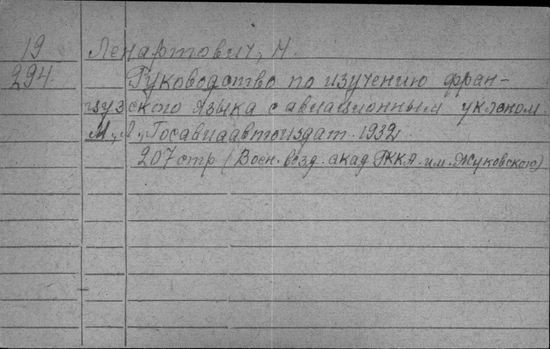 19 Ленартович, Н.
294 Руководство по изучению фран-
цузского языка с авиационным уклоном
М., Л., Госавиаавтоиздат. 1932,
207 стр (Воен. возд. акад РККА. им. Жуковского)